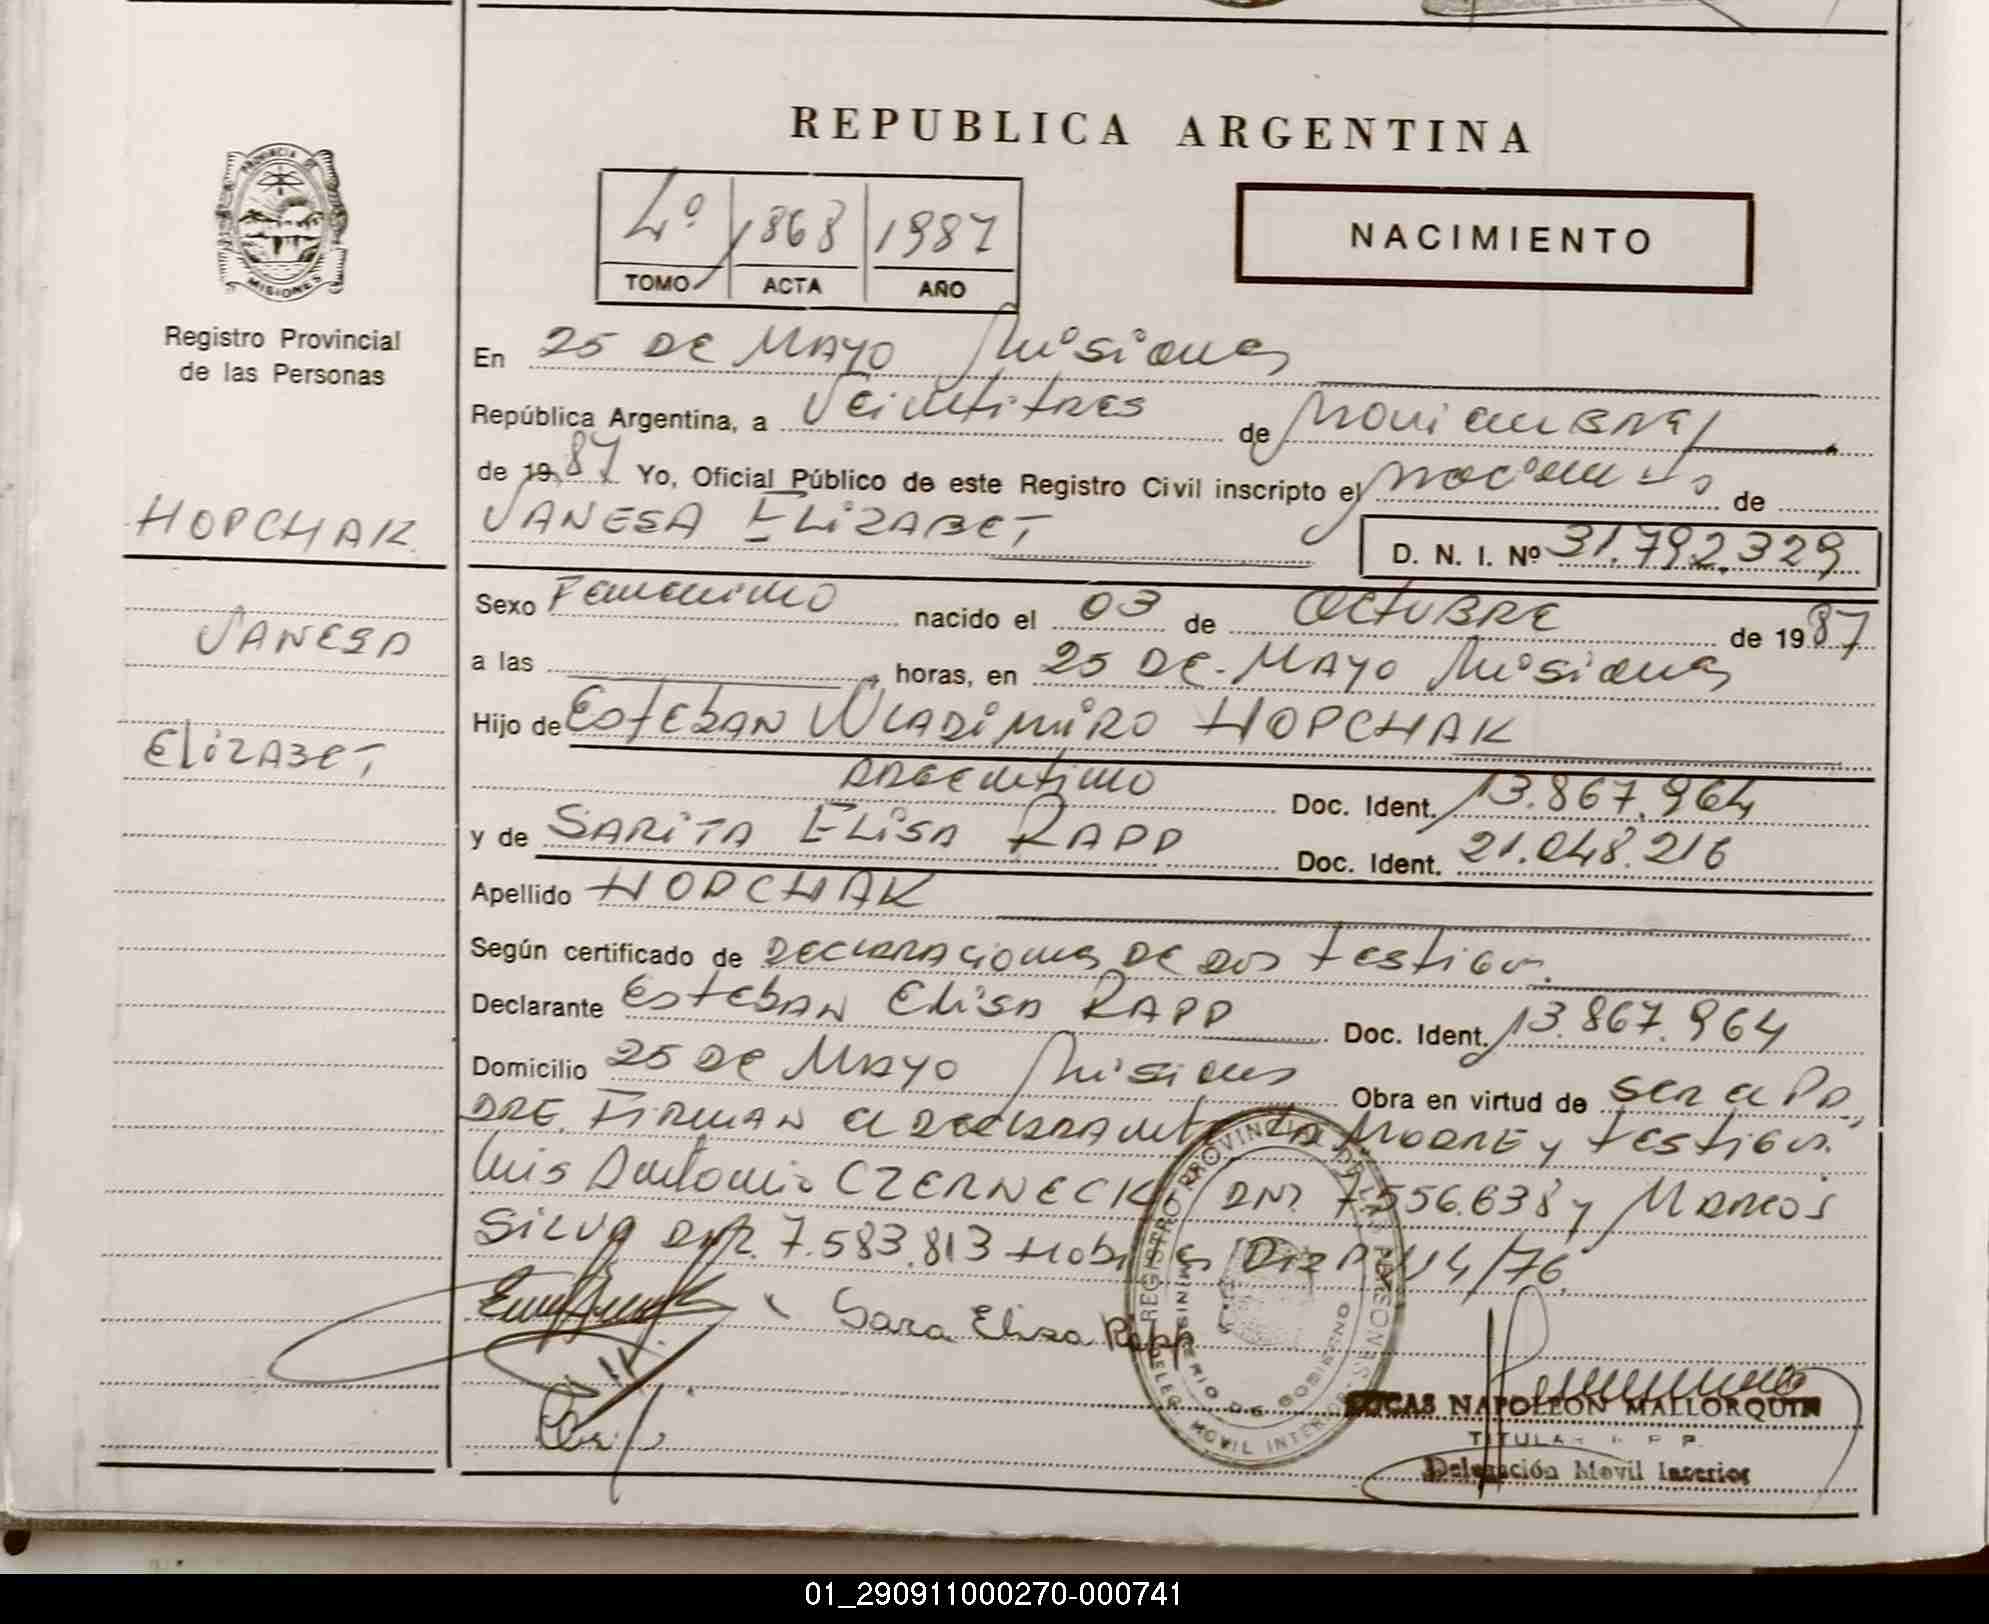 REPUBLICA ARGENTINA
4º 1868 1987
TOMO ACTA AÑO
NACIMIENTO
PROVINCIA DE
MISIONES
Registro Provincial
de las Personas
HOPCHAK
VANESA
ELIZABET
En 25 DE MAYO Misiones
República Argentina, a Veintitres de Noviembre
de 1987 Yo, Oficial Público de este Registro Civil inscripto el Nacimiento de
VANESA ELIZABET D. N. I. Nº 31.792.329
Sexo Femenino nacido el 03 de OCTUBRE de 1987
a las horas, en 25 DE MAYO Misiones
Hijo de ESTEBAN WLADIMIRO HOPCHAK
ARGENTINO Doc. Ident. 13.867.964
y de SARITA ELISA RAPP Doc. Ident. 21.048.216
Apellido HOPCHAK
Según certificado de DECLARACIONES DE DOS testigos.
Declarante ESTEBAN ELISA RAPP Doc. Ident. 13.867.964
Domicilio 25 DE MAYO Misiones Obra en virtud de SER el PA
DRE. FIRMAN el DECLARANTE LA MADRE y testigos.
Luis Antonio CZERNECKI DNI 7.556.638 y MARCOS
SILVA DNI. 7.583.813 14/76
Sara Elisa Rapp
REGISTRO PROVINCIAL DE LAS PERSONAS
MINISTERIO DE GOBIERNO
DELEG. MOVIL INTERIOR
LUCAS NAPOLEON MALLORQUIN
TITULAR R. P. P.
Delegación Movil Interior
01_290911000270-000741